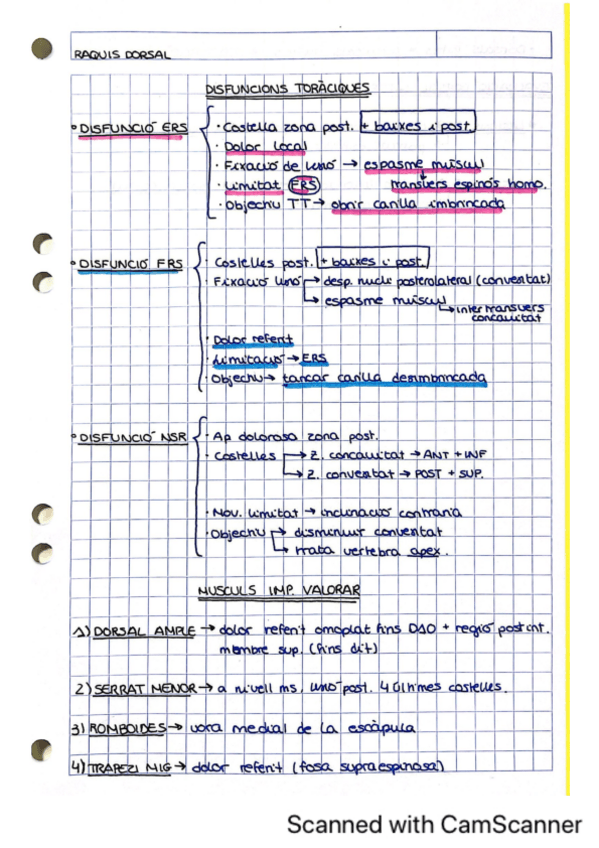 RAQUIS DORSAL
DISFUNCIONS TORÀCIQUES
DISFUNCIÓ ERS
· Costella zona post. + baixes i post.
· Dolor local
· Fixació de l'unó → espasme muscul
· Limitat FRS transvers espinós homo.
· Objectiu TT → obrir carilla imbrincada
DISFUNCIÓ FRS
· Costelles post. + baixes i post.
· Fixació unó → desp. nucli posterolateral (convexitat)
→ espasme muscul
→ intertransvers
concavitat
· Dolor referit
· Limitació → ERS
· Objectiu → tancar carilla desimbrincada
DISFUNCIÓ NSR
· Ap dolorosa zona post.
· Costelles → Z. concavitat → ANT + INF
→ Z. convexitat → POST + SUP.
· Mov. limitat → inclinació contraria
· Objectiu → disminuir convexitat
→ tracta vertebra apex.
MUSCULS IMP. VALORAR
1) DORSAL AMPLE → dolor referit omoplat fins D10 + regió post int.
membre sup. (fins dit)
2) SERRAT MENOR → a nivell ms, unó post. 4 últimes costelles.
3) ROMBOIDES → vora medial de la escàpula
4) TRAPEZI MIG → dolor referit (fosa supraespinosa)
Scanned with CamScanner